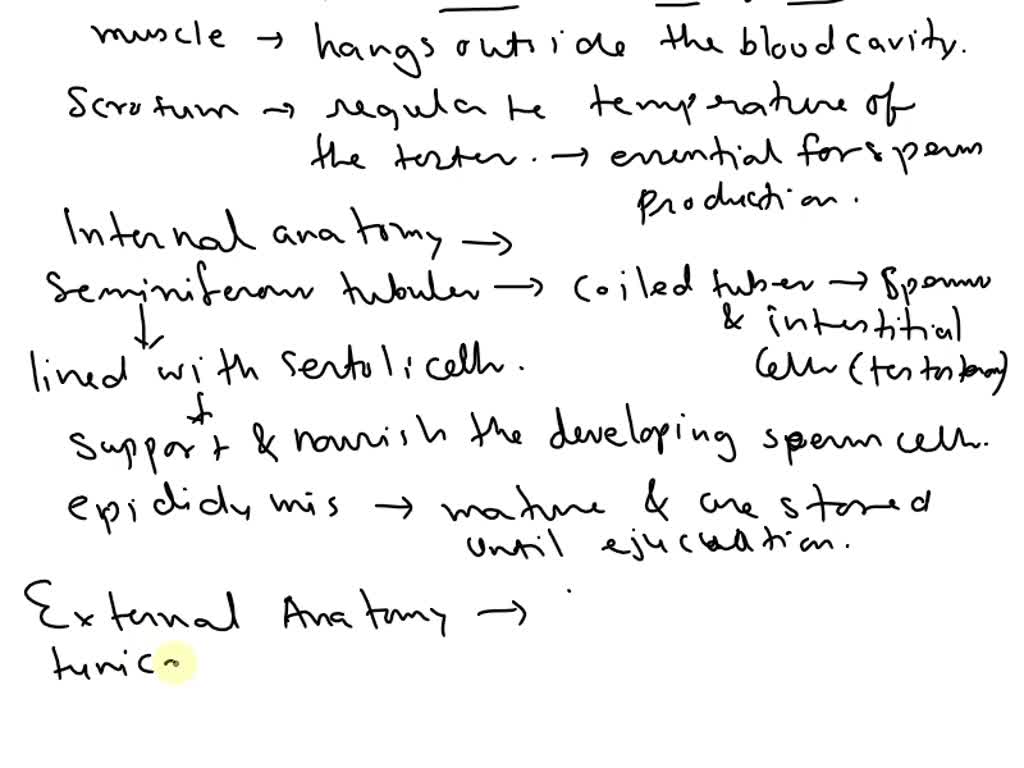 muscle → hangs outside the blood cavity.
Scrotum → regulate temperature of
the testes. → essential for sperm
production.
Internal anatomy →
Seminiferous tubules → coiled tubes → sperms
& interstitial
cells (testosteron)
lined with sertoli cells.
support & nourish the developing sperm cells.
epididymis → mature & are stored
until ejaculation.
External Anatomy →
tunica